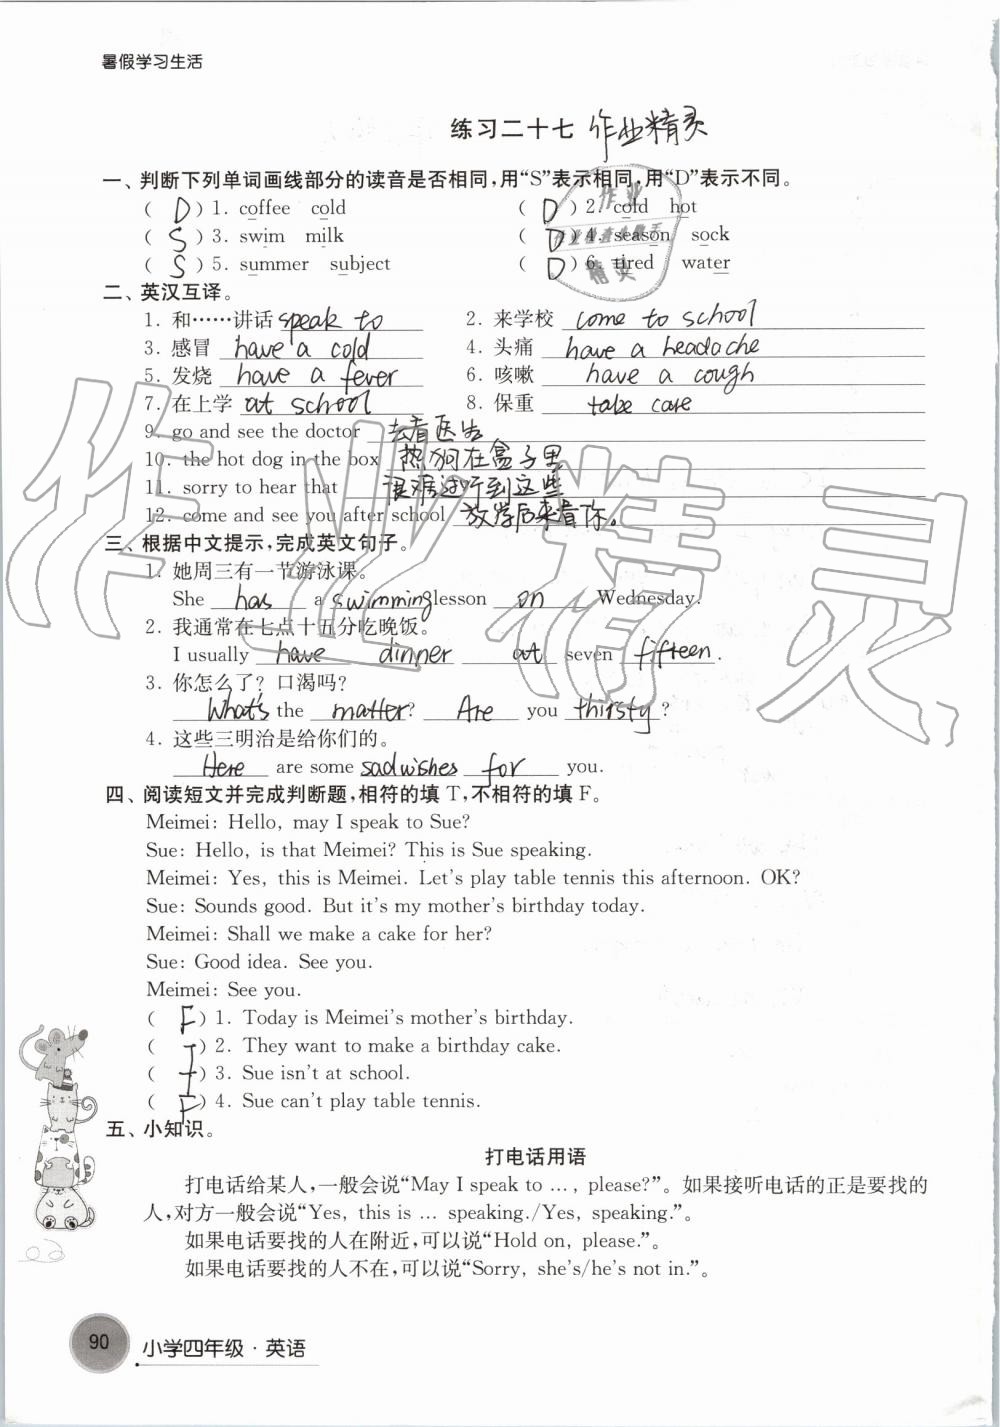 暑假学习生活
练习二十七 作业精灵
一、判断下列单词画线部分的读音是否相同,用“S”表示相同,用“D”表示不同。
( D ) 1. coffee cold ( D ) 2. cold hot
( S ) 3. swim milk ( D ) 4. season sock
( S ) 5. summer subject ( D ) 6. tired water
二、英汉互译。
1. 和……讲话 speak to 2. 来学校 come to school
3. 感冒 have a cold 4. 头痛 have a headache
5. 发烧 have a fever 6. 咳嗽 have a cough
7. 在上学 at school 8. 保重 take care
9. go and see the doctor 去看医生
10. the hot dog in the box 热狗在盒子里
11. sorry to hear that 很难过听到这些
12. come and see you after school 放学后来看你。
三、根据中文提示,完成英文句子。
1. 她周三有一节游泳课。
She has a swimming lesson on Wednesday.
2. 我通常在七点十五分吃晚饭。
I usually have dinner at seven fifteen.
3. 你怎么了? 口渴吗?
What's the matter? Are you thirsty?
4. 这些三明治是给你们的。
Here are some sadwishes for you.
四、阅读短文并完成判断题,相符的填 T,不相符的填 F。
Meimei: Hello, may I speak to Sue?
Sue: Hello, is that Meimei? This is Sue speaking.
Meimei: Yes, this is Meimei. Let's play table tennis this afternoon. OK?
Sue: Sounds good. But it's my mother's birthday today.
Meimei: Shall we make a cake for her?
Sue: Good idea. See you.
Meimei: See you.
( F ) 1. Today is Meimei's mother's birthday.
( T ) 2. They want to make a birthday cake.
( T ) 3. Sue isn't at school.
( F ) 4. Sue can't play table tennis.
五、小知识。
打电话用语
打电话给某人,一般会说“May I speak to …, please?”。如果接听电话的正是要找的
人,对方一般会说“Yes, this is … speaking./Yes, speaking.”。
如果电话要找的人在附近,可以说“Hold on, please.”。
如果电话要找的人不在,可以说“Sorry, she's/he's not in.”。
90 小学四年级·英语
作业精灵